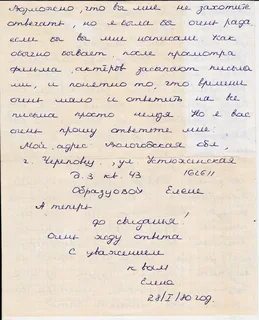 Возможно, что вы мне не захотите
отвечать, но я была бы очень рада
если бы вы мне написали. Как
обычно бывает, после просмотра
фильма, актёров засыпают письма
ми, и понятно то, что времени
очень мало и ответить на все
письма просто нельзя. Но я вас
очень прошу ответьте мне.
Мой адрес: Вологодская обл,
г. Череповец, ул Устюженская
д. 3 кв. 43 162611
Образцовой Елене
А теперь
до свиданья!
Очень жду ответа
С уважением
к вам
Елена
28/I/80 год.